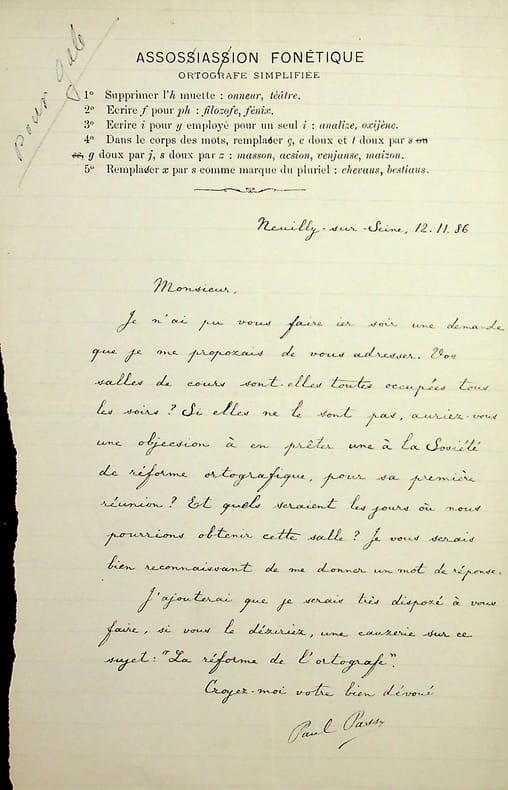 pour gale
ASSOSSIASSION FONÉTIQUE
ORTOGRAFE SIMPLIFIÉE
1º Supprimer l'h muette : onneur, téâtre.
2º Ecrire f pour ph : filozofe, fénix.
3º Ecrire i pour y employé pour un seul i : analize, oxijène.
4º Dans le corps des mots, remplaser ç, c doux et t doux par s ou
ss, g doux par j, s doux par z : masson, acsion, venjanse, maizon.
5º Remplaser x par s comme marque du pluriel : chevaus, bestiaus.
Neuilly-sur-Seine, 12.11.86
Monsieur,
Je n'ai pu vous faire ier soir une demande
que je me propozais de vous adresser. Vos
salles de cours sont-elles toutes occupées tous
les soirs ? Si elles ne le sont pas, auriez-vous
une objecsion à en prêter une à la Sosiété
de réforme ortografique, pour sa première
réunion ? Et quels seraient les jours où nous
pourrions obtenir cette salle ? Je vous serais
bien reconnaissant de me donner un mot de réponse.
J'ajouterai que je serais très dispozé à vous
faire, si vous le déziriez, une cauzerie sur ce
sujet : "La réforme de l'ortografe".
Croyez-moi votre bien dévoué
Paul Passy